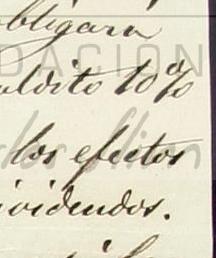 obligara
DACION
aldito 10%
los efectos
ividendos.